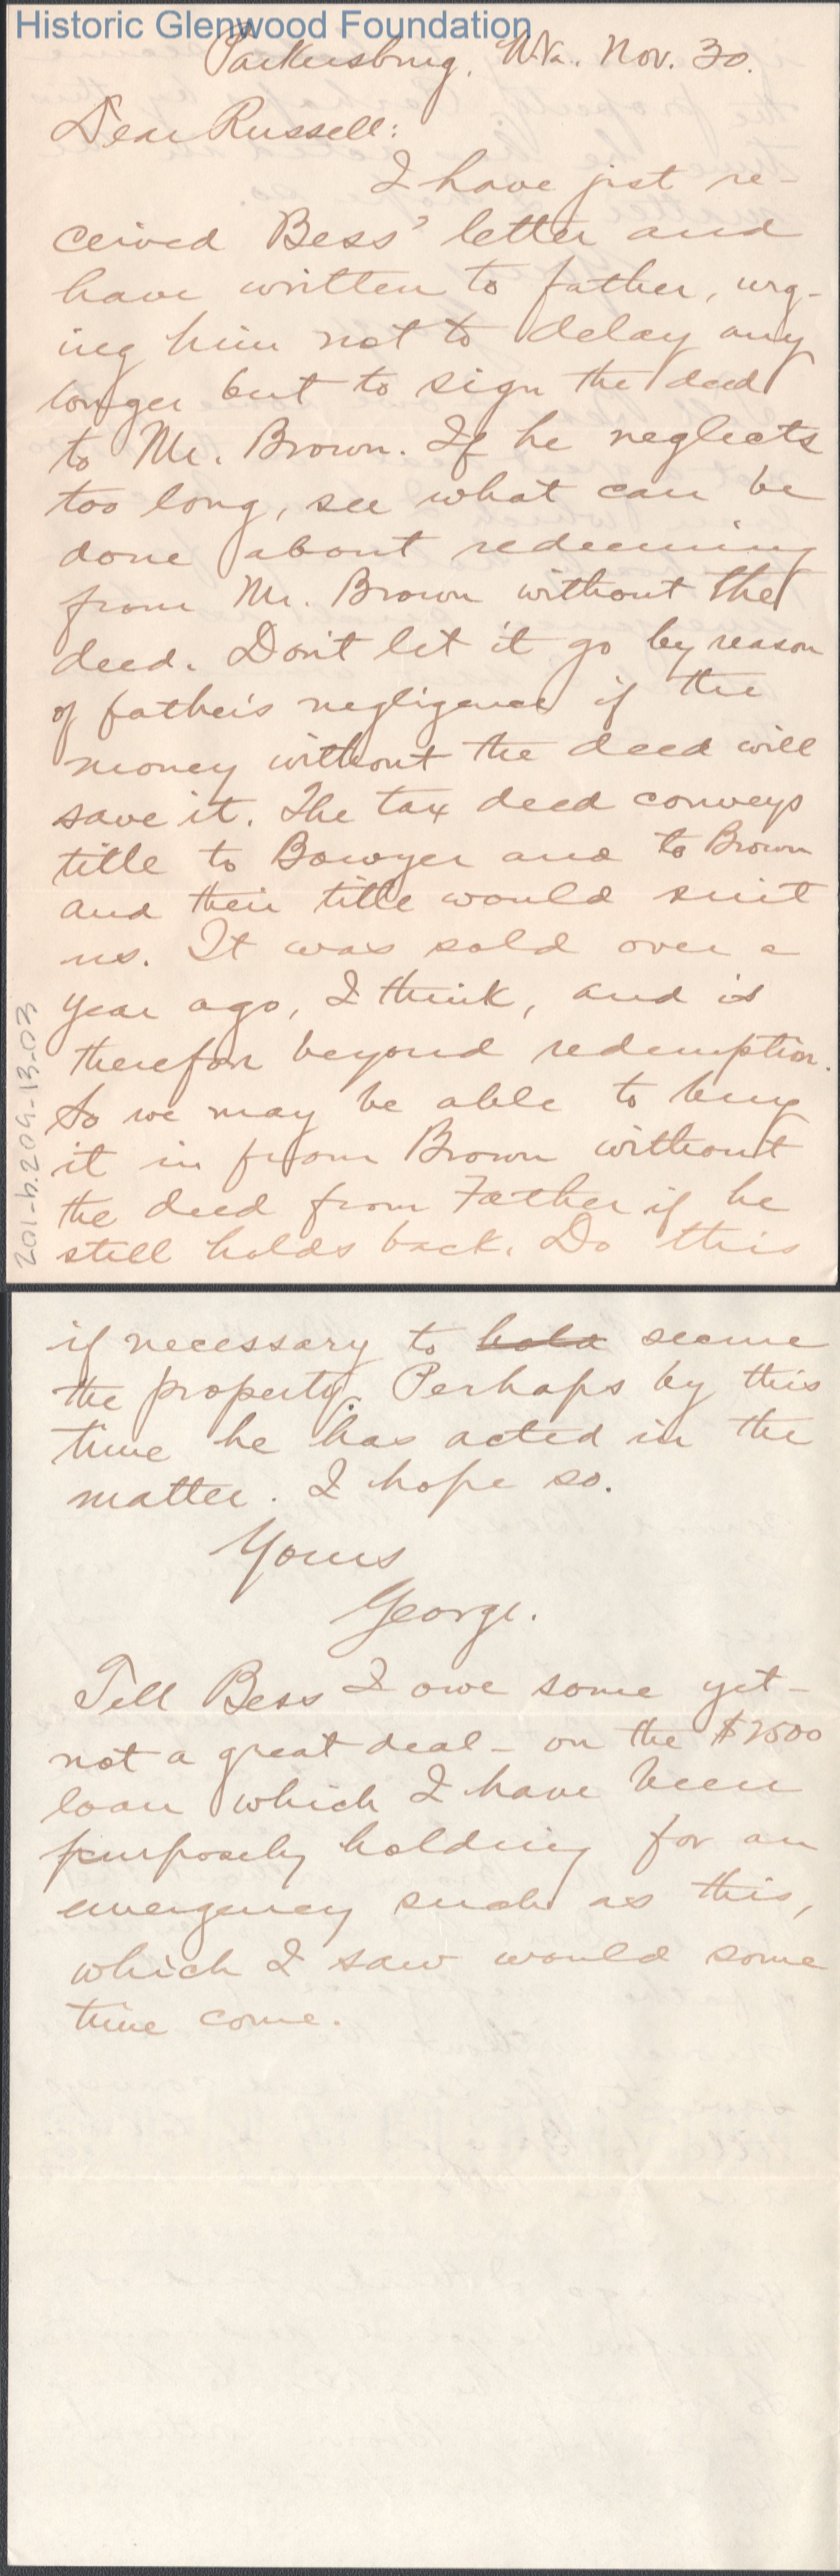 Historic Glenwood Foundation
Parkersburg, W.Va., Nov. 30.
Dear Russell:
I have just re-
ceived Bess' letter and
have written to father, urg-
ing him not to delay any
longer but to sign the deed
to Mr. Brown. If he neglects
too long, see what can be
done about redeeming
from Mr. Brown without the
deed. Don't let it go by reason
of father's negligence if the
money without the deed will
save it. The tax deed conveys
title to Bowyer and to Brown
and their title would suit
us. It was sold over a
year ago, I think, and is
therefor beyond redemption.
So we may be able to buy
it in from Brown without
the deed from Father if he
still holds back. Do this
201-b.209-13-03
if necessary to hold secure
the property. Perhaps by this
time he has acted in the
matter. I hope so.
Yours
George.
Tell Bess I owe some yet -
not a great deal - on the $2500
loan which I have been
purposely holding for an
emergency such as this,
which I saw would some
time come.